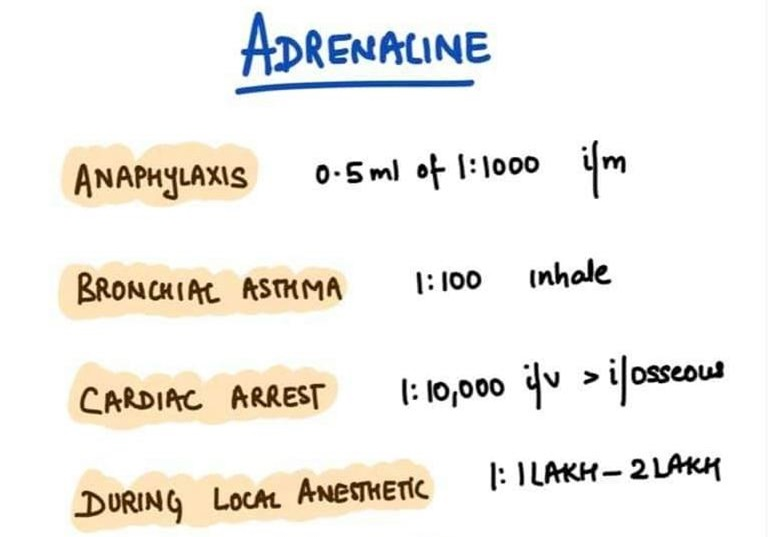 ADRENALINE
ANAPHYLAXIS 0.5 ml of 1:1000 i/m
BRONCHIAL ASTHMA 1:100 inhale
CARDIAC ARREST 1:10,000 i/v > i/osseous
DURING LOCAL ANESTHETIC 1: 1 LAKH - 2 LAKH